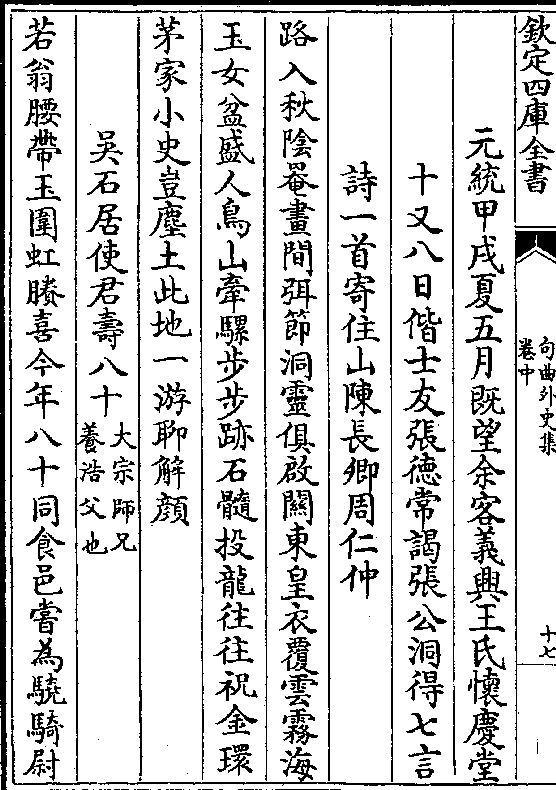 欽定四庫全書
句曲外史集
卷中
十七
元統甲戌夏五月既望余客義興王氏懷慶堂
十又八日偕士友張德常謁張公洞得七言
詩一首寄住山陳長卿周仁仲
路入秋陰罨畫間弭節洞靈俱啟關東皇衣覆雲霧海
玉女盆盛人鳥山牽騾步步跡石髓投龍往往祝金環
茅家小史豈塵土此地一游聊解顔
吳石居使君壽八十
大宗師兄
養浩父也
若翁腰帶玉圍虹賸喜今年八十同食邑嘗為驍騎尉